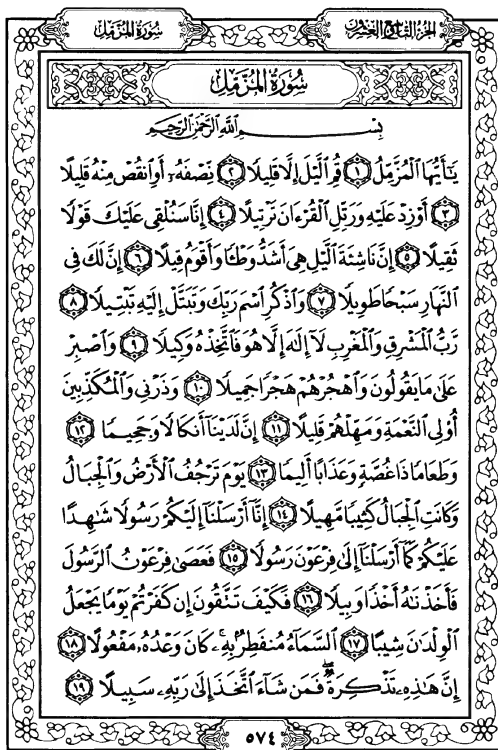 سُورَةُ المُزَّمِّلِ الجُزْءُ التَّاسِعُ وَالعِشْرُونَ
سُورَةُ المُزَّمِّلِ
بِسْمِ ٱللَّهِ ٱلرَّحْمَٰنِ ٱلرَّحِيمِ
يَٰٓأَيُّهَا ٱلْمُزَّمِّلُ ١ قُمِ ٱلَّيْلَ إِلَّا قَلِيلًا ٢ نِّصْفَهُۥٓ أَوِ ٱنقُصْ مِنْهُ قَلِيلًا
٣ أَوْ زِدْ عَلَيْهِ وَرَتِّلِ ٱلْقُرْءَانَ تَرْتِيلًا ٤ إِنَّا سَنُلْقِى عَلَيْكَ قَوْلًا
ثَقِيلًا ٥ إِنَّ نَاشِئَةَ ٱلَّيْلِ هِىَ أَشَدُّ وَطْـًٔا وَأَقْوَمُ قِيلًا ٦ إِنَّ لَكَ فِى
ٱلنَّهَارِ سَبْحًا طَوِيلًا ٧ وَٱذْكُرِ ٱسْمَ رَبِّكَ وَتَبَتَّلْ إِلَيْهِ تَبْتِيلًا ٨
رَّبُّ ٱلْمَشْرِقِ وَٱلْمَغْرِبِ لَآ إِلَٰهَ إِلَّا هُوَ فَٱتَّخِذْهُ وَكِيلًا ٩ وَٱصْبِرْ
عَلَىٰ مَا يَقُولُونَ وَٱهْجُرْهُمْ هَجْرًا جَمِيلًا ١٠ وَذَرْنِى وَٱلْمُكَذِّبِينَ
أُو۟لِى ٱلنَّعْمَةِ وَمَهِّلْهُمْ قَلِيلًا ١١ إِنَّ لَدَيْنَآ أَنكَالًا وَجَحِيمًا ١٢
وَطَعَامًا ذَا غُصَّةٍ وَعَذَابًا أَلِيمًا ١٣ يَوْمَ تَرْجُفُ ٱلْأَرْضُ وَٱلْجِبَالُ
وَكَانَتِ ٱلْجِبَالُ كَثِيبًا مَّهِيلًا ١٤ إِنَّآ أَرْسَلْنَآ إِلَيْكُمْ رَسُولًا شَٰهِدًا
عَلَيْكُمْ كَمَآ أَرْسَلْنَآ إِلَىٰ فِرْعَوْنَ رَسُولًا ١٥ فَعَصَىٰ فِرْعَوْنُ ٱلرَّسُولَ
فَأَخَذْنَٰهُ أَخْذًا وَبِيلًا ١٦ فَكَيْفَ تَتَّقُونَ إِن كَفَرْتُمْ يَوْمًا يَجْعَلُ
ٱلْوِلْدَٰنَ شِيبًا ١٧ ٱلسَّمَآءُ مُنفَطِرٌۢ بِهِۦ ۚ كَانَ وَعْدُهُۥ مَفْعُولًا ١٨
إِنَّ هَٰذِهِۦ تَذْكِرَةٌ ۖ فَمَن شَآءَ ٱتَّخَذَ إِلَىٰ رَبِّهِۦ سَبِيلًا ١٩
٥٧٤